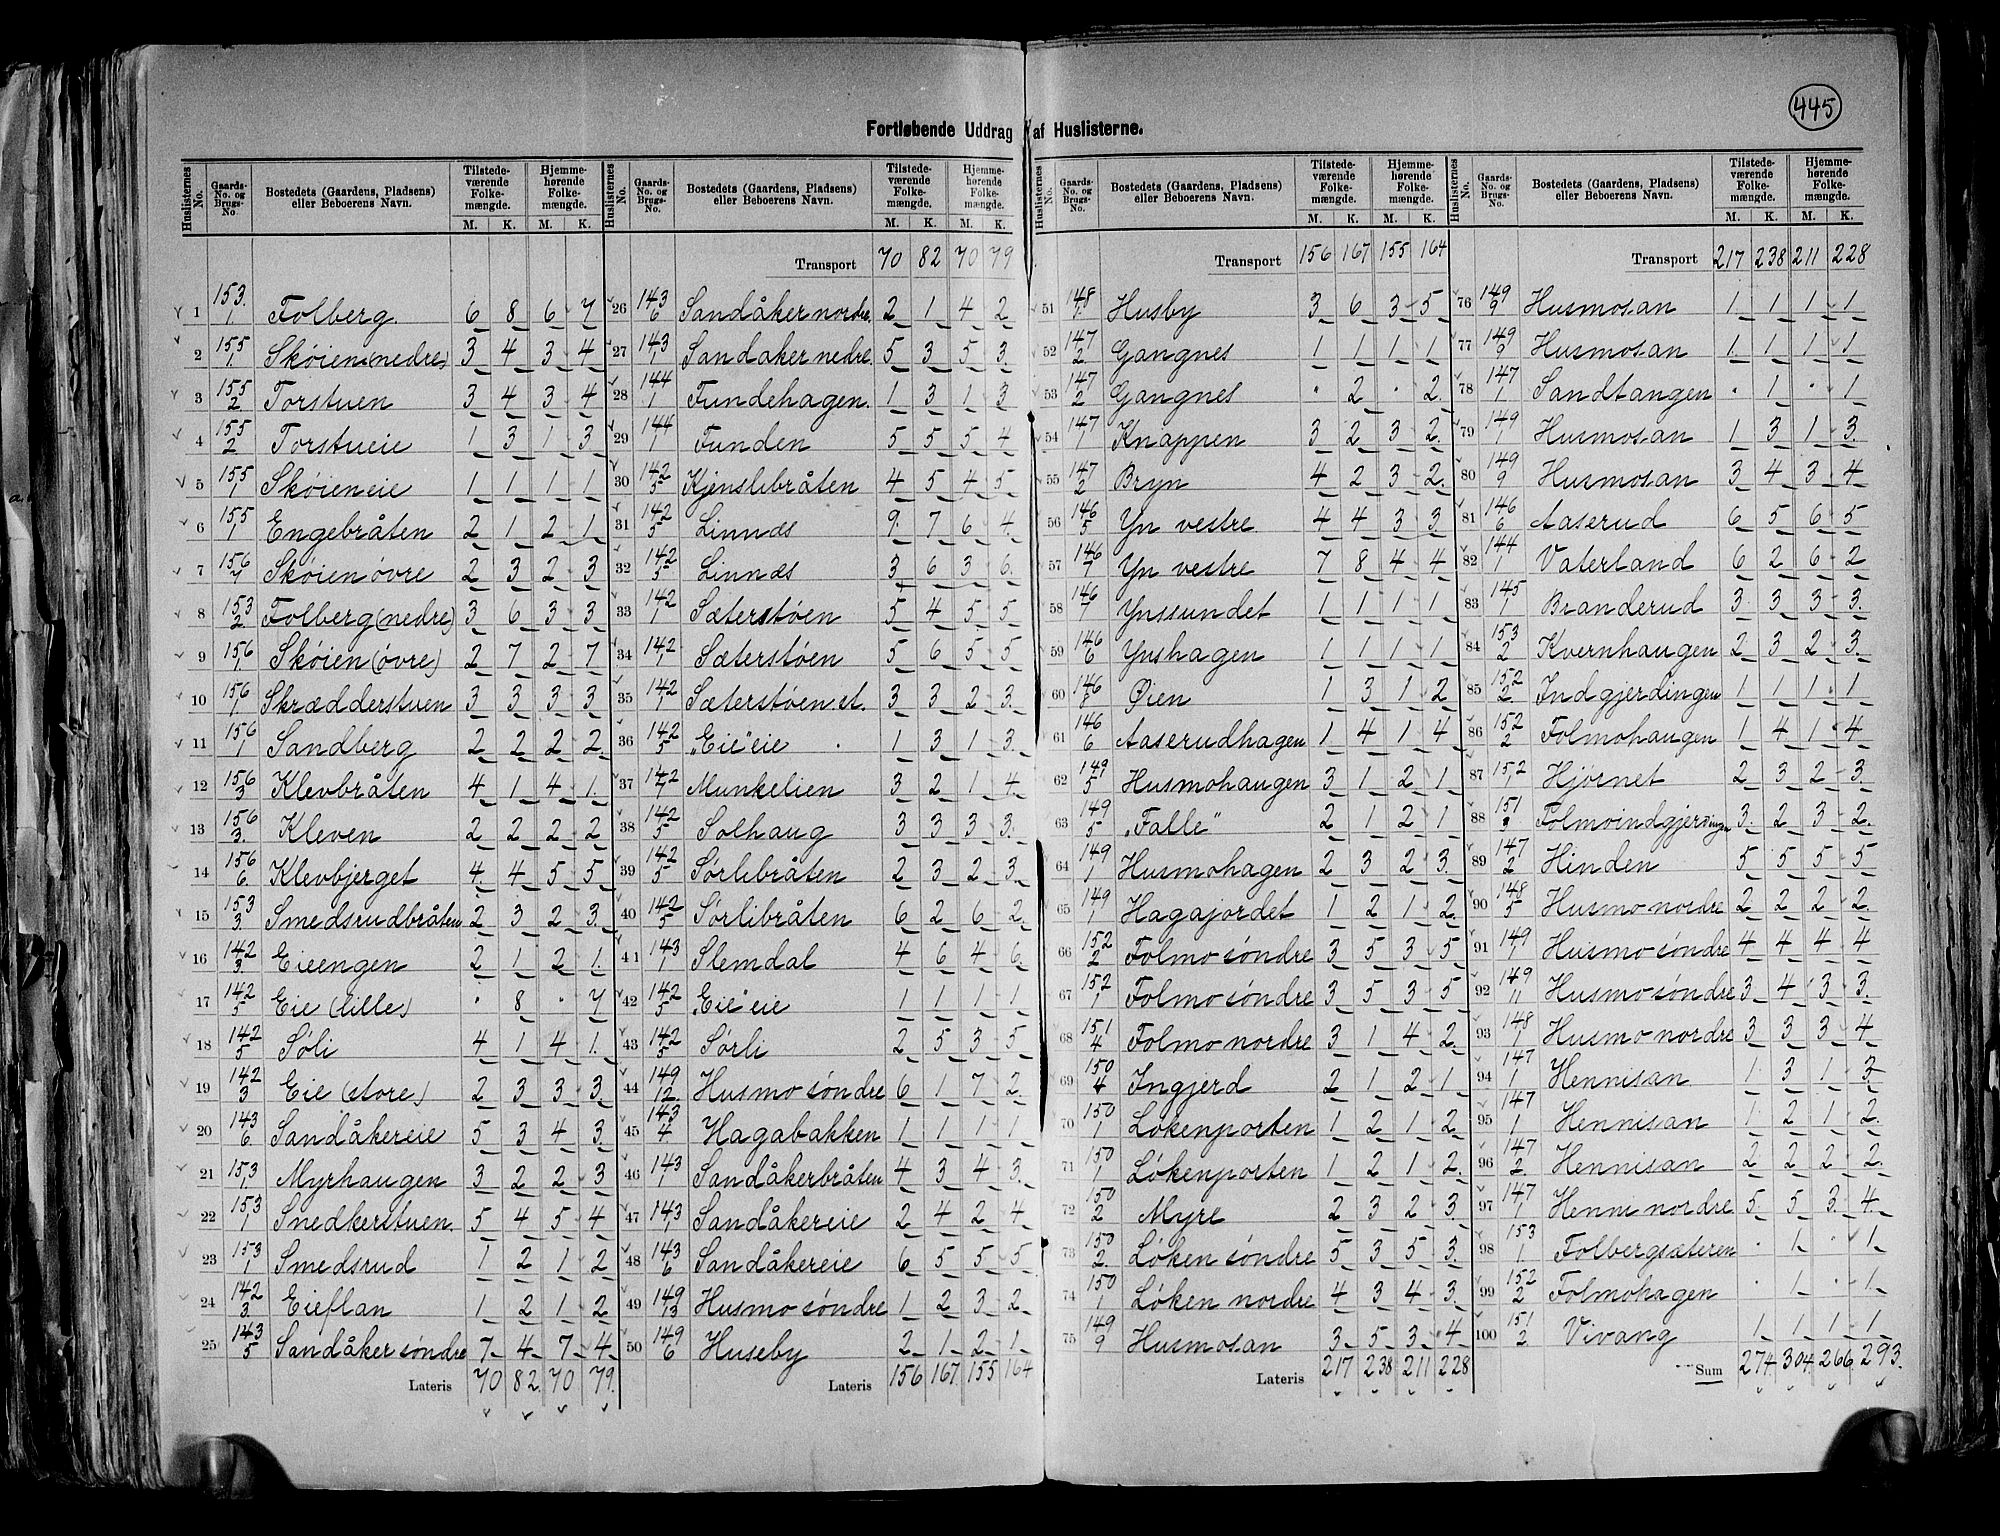 445
Fortløbende Uddrag af Huslisterne.
Huslisternes No. | Gaards-No. og Brugs-No. | Bostedets (Gaardens, Pladsens) eller Beboerens Navn. | Tilstedeværende Folkemængde. M. K. | Hjemmehørende Folkemængde. M. K.
1 153/1 Folberg 6 8 6 7
2 155/1 Skøien (nedre) 3 4 3 4
3 155/2 Torstuen 3 4 3 4
4 155/2 Torstueie 1 3 1 3
5 155/1 Skøieneie 1 1 1 1
6 155/1 Engebråten 2 1 2 1
7 156/7 Skøien øvre 2 3 2 3
8 153/2 Folberg (nedre) 3 6 3 3
9 156/1 Skøien (øvre) 2 7 2 7
10 156/1 Skrædderstuen 3 3 3 3
11 156/1 Sandberg 2 2 2 2
12 156/3 Klevbråten 4 1 4 1
13 156/3 Kleven 2 2 2 2
14 156/6 Klevbjerget 4 4 5 5
15 153/3 Smedsrudbråten 2 3 2 3
16 142/3 Eieengen 2 1 2 1
17 142/5 Eie (lille) · 8 · 7
18 142/5 Søli 4 1 4 1
19 142/3 Eie (store) 2 3 3 3
20 143/6 Sandåkereie 5 3 4 3
21 153/1 Myrhaugen 3 2 2 3
22 153/1 Snedkerstuen 5 4 5 4
23 153/1 Smedsrud 1 2 1 2
24 142/3 Eieflan 1 2 1 2
25 143/5 Sandåker søndre 7 4 7 4
Lateris 70 82 70 79
Huslisternes No. | Gaards-No. og Brugs-No. | Bostedets (Gaardens, Pladsens) eller Beboerens Navn. | Tilstedeværende Folkemængde. M. K. | Hjemmehørende Folkemængde. M. K.
Transport 70 82 70 79
26 143/6 Sandåker nordre 2 1 4 2
27 143/1 Sandaker nedre 5 3 5 3
28 144/1 Fundehagen 1 3 1 3
29 144/1 Funden 5 5 5 4
30 142/5 Kjenslibråten 4 5 4 5
31 142/5 Linnæs 9 7 6 4
32 142/5 Linnæs 3 6 3 6
33 142/1 Sæterstøen 5 4 5 5
34 142/1 Sæterstøen 5 6 5 5
35 142/1 Sæterstøen st. 3 3 2 3
36 142/5 „Eie" eie 1 3 1 3
37 142/7 Munkelien 3 2 1 4
38 142/5 Solhaug 3 3 3 3
39 142/5 Sørlibråten 2 3 2 3
40 142/5 Sørlibråten 6 2 6 2
41 143/1 Slemdal 4 6 4 6
42 142/5 „Eie" eie 1 1 1 1
43 142/5 Sørli 2 5 3 5
44 149/12 Husmo søndre 6 1 7 2
45 143/4 Hagabakken 1 1 1 1
46 143/1 Sandåkerbråten 4 3 4 3
47 143/1 Sandåkereie 2 4 2 4
48 143/6 Sandåkereie 6 5 5 5
49 149/13 Husmo søndre 1 2 3 2
50 149/6 Huseby 2 1 2 1
Lateris 156 167 155 164
Huslisternes No. | Gaards-No. og Brugs-No. | Bostedets (Gaardens, Pladsens) eller Beboerens Navn. | Tilstedeværende Folkemængde. M. K. | Hjemmehørende Folkemængde. M. K.
Transport 156 167 155 164
51 148/1 Husby 3 6 3 5
52 147/2 Gangnes 1 1 1 1
53 147/2 Gangnes · 2 · 2
54 147/1 Knappen 3 2 3 2
55 147/2 Bryn 4 2 3 2
56 146/5 Yn vestre 4 4 3 3
57 146/7 Yn vestre 7 8 4 4
58 146/7 Ynssundet 1 1 1 1
59 146/6 Ynshagen 1 1 1 1
60 146/8 Øien 1 3 1 2
61 146/6 Aaserudhagen 1 4 1 4
62 149/5 Husmohaugen 3 1 2 1
63 149/5 „Falle" 2 1 2 1
64 149/1 Husmohagen 2 3 2 3
65 149/1 Hagajordet 1 2 1 2
66 152/2 Folmo søndre 3 5 3 5
67 152/1 Folmo søndre 3 5 3 5
68 151/4 Folmo nordre 3 1 4 2
69 150/4 Ingjerd 2 1 2 1
70 150/1 Løkenporten 1 2 1 2
71 150/1 Løkenporten 1 2 1 2
72 150/2 Myre 2 3 2 3
73 150/2 Løken søndre 5 3 5 3
74 150/1 Løken nordre 4 3 4 3
75 149/9 Husmosan 3 5 3 4
Lateris 217 238 211 228
Huslisternes No. | Gaards-No. og Brugs-No. | Bostedets (Gaardens, Pladsens) eller Beboerens Navn. | Tilstedeværende Folkemængde. M. K. | Hjemmehørende Folkemængde. M. K.
Transport 217 238 211 228
76 149/9 Husmosan 1 1 1 1
77 149/9 Husmosan 1 1 1 1
78 147/1 Sandtangen · 1 · 1
79 149/1 Husmosan 1 3 1 3
80 149/9 Husmosan 3 4 3 4
81 146/6 Aaserud 6 5 6 5
82 144/1 Vaterland 6 2 6 2
83 145/1 Branderud 3 3 3 3
84 153/2 Kvernhaugen 2 3 2 3
85 152/2 Indgjerdingen 1 1 1 1
86 152/2 Folmohaugen 1 4 1 4
87 152/1 Hjørnet 2 3 2 3
88 151/3 Folmoindgjerdingen 3 2 3 2
89 147/2 Hinden 5 5 5 5
90 148/5 Husmo nordre 2 2 2 2
91 149/1 Husmo søndre 4 4 4 4
92 149/11 Husmo søndre 3 4 3 3
93 148/1 Husmo nordre 3 3 3 4
94 147/1 Hennisan 1 3 1 3
95 147/1 Hennisan 1 2 1 2
96 147/2 Hennisan 2 2 2 2
97 147/1 Henni nordre 5 5 3 4
98 153/1 Folbergsæteren · 1 · 1
99 152/2 Folmohagen · 1 · 1
100 151/2 Vivang 1 1 1 1
Sum 274 304 266 293